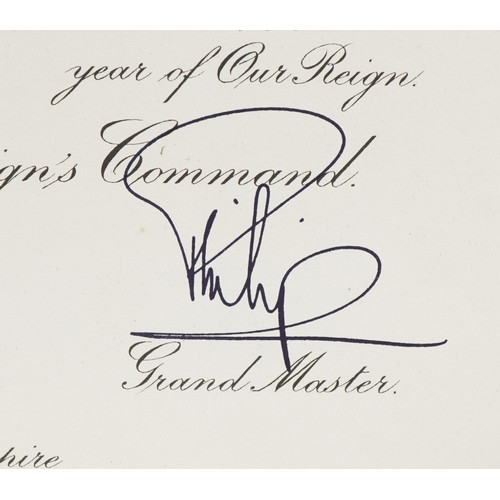 year of Our Reign.
ign's Command.
Philip
Grand Master.
pire